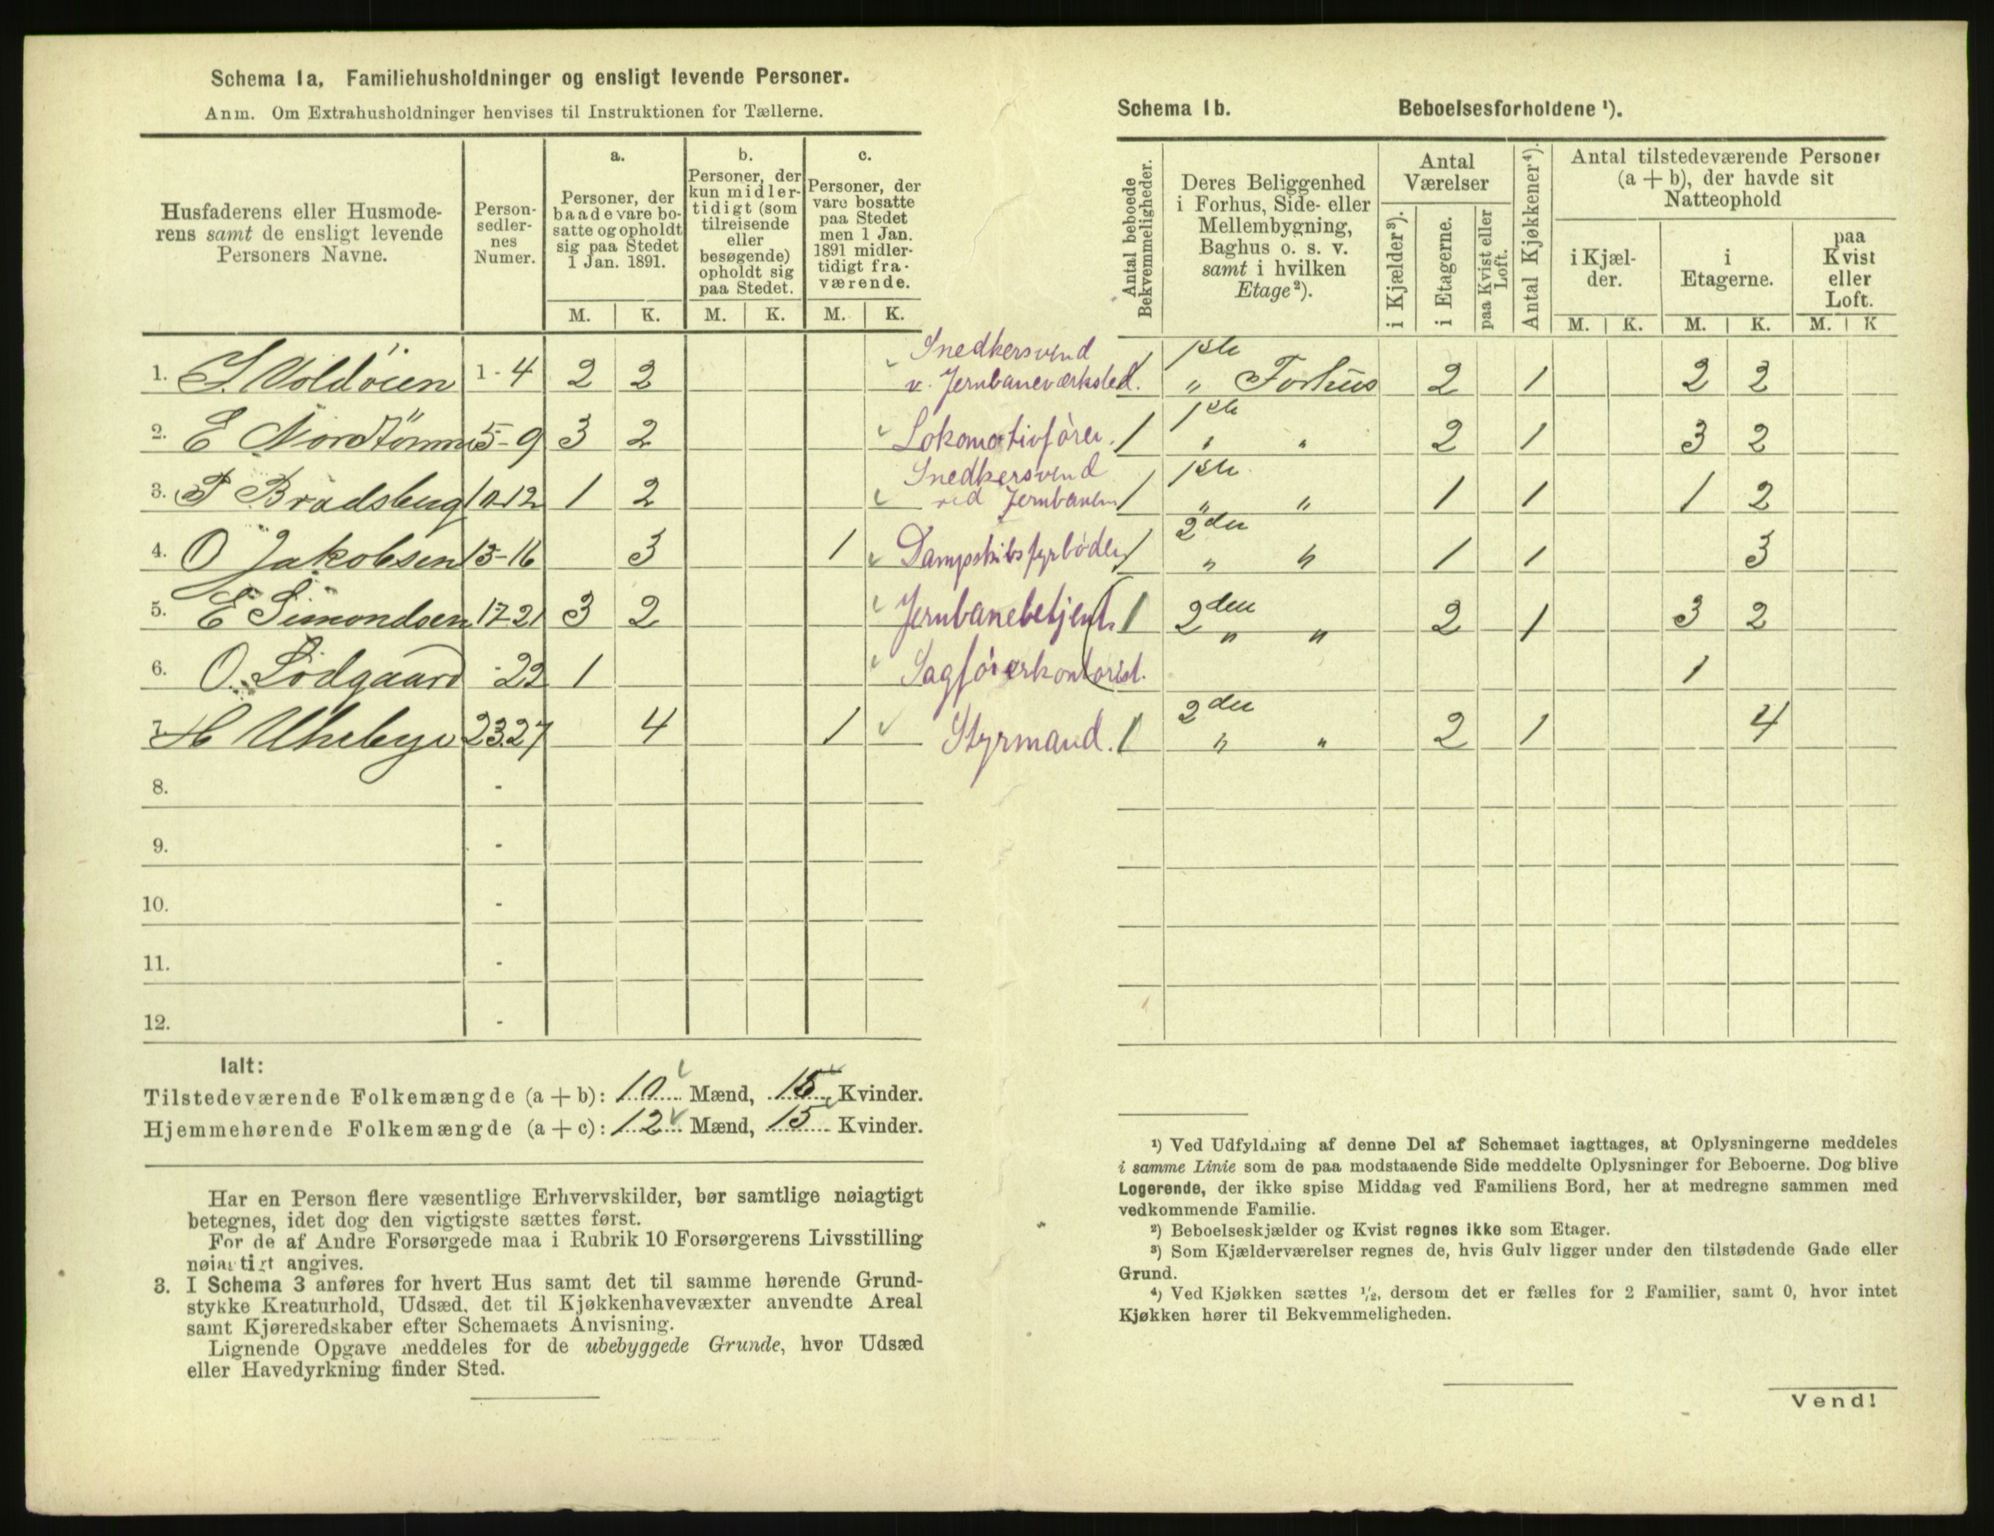 Schema 1a. Familiehusholdninger og ensligt levende Personer.
Anm. Om Extrahusholdninger henvises til Instruktionen for Tællerne.
Husfaderens eller Husmode-
rens samt de ensligt levende
Personers Navne.
Person-
sedler-
nes
Numer.
a.
Personer, der
baade vare bo-
satte og opholdt
sig paa Stedet
1 Jan. 1891.
b.
Personer, der
kun midler-
tidigt (som
tilreisende
eller
besøgende)
opholdt sig
paa Stedet.
c.
Personer, der
vare bosatte
paa Stedet
men 1 Jan.
1891 midler-
tidigt fra-
værende.
M. K. M. K. M. K.
1. S. Voldøien 1-4 2 2 Snedkersvend
v. Jernbaneværksted.
2. E 5-9 3 2 Lokomotivfører.
3. P Bradsberg 10-12 1 2 Snedkersvend
ved Jernbanen
4. O Jakobsen 13-16 3 1 Dampskibsfyrbøder
5. E Simondsen 17-21 3 2 Jernbanebetjent
6. O. Lødgaard 22 1 Sagførerkontorist.
7. H 23 27 4 1 Styrmand.
8. -
9. -
10. -
11. -
12. -
Ialt:
Tilstedeværende Folkemængde (a + b): 10 Mænd, 15 Kvinder.
Hjemmehørende Folkemængde (a + c): 12 Mænd, 15 Kvinder.
Har en Person flere væsentlige Erhvervskilder, bør samtlige nøiagtigt
betegnes, idet dog den vigtigste sættes først.
For de af Andre Forsørgede maa i Rubrik 10 Forsørgerens Livsstilling
nøiagtigt angives.
3. I Schema 3 anføres for hvert Hus samt det til samme hørende Grund-
stykke Kreaturhold, Udsæd, det til Kjøkkenhavevæxter anvendte Areal
samt Kjøreredskaber efter Schemaets Anvisning.
Lignende Opgave meddeles for de ubebyggede Grunde, hvor Udsæd
eller Havedyrkning finder Sted.
Schema 1b. Beboelsesforholdene ¹).
Antal beboede
Bekvemmeligheder.
Deres Beliggenhed
i Forhus, Side- eller
Mellembygning,
Baghus o. s. v.
samt i hvilken
Etage²).
Antal
Værelser
i Kjælder³).
i Etagerne.
paa Kvist eller
Loft.
Antal Kjøkkener⁴).
Antal tilstedeværende Personer
(a + b), der havde sit
Natteophold
i Kjæl-
der.
i
Etagerne.
paa
Kvist
eller
Loft.
M. K. M. K. M. K
1 1ste " Forhus 2 1 2 2
1 1ste " " 2 1 3 2
1 1ste " " 1 1 1 2
1 2den " " 1 1 3
1 2den " " 2 1 3 2
1
1 2den " " 2 1 4
¹) Ved Udfyldning af denne Del af Schemaet iagttages, at Oplysningerne meddeles
i samme Linie som de paa modstaaende Side meddelte Oplysninger for Beboerne. Dog blive
Logerende, der ikke spise Middag ved Familiens Bord, her at medregne sammen med
vedkommende Familie.
²) Beboelseskjælder og Kvist regnes ikke som Etager.
³) Som Kjælderværelser regnes de, hvis Gulv ligger under den tilstødende Gade eller
Grund.
⁴) Ved Kjøkken sættes ½, dersom det er fælles for 2 Familier, samt 0, hvor intet
Kjøkken hører til Bekvemmeligheden.
Vend!